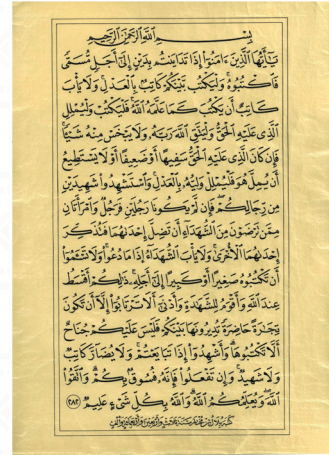 بِسْمِ ٱللَّهِ ٱلرَّحْمَٰنِ ٱلرَّحِيمِ
يَٰٓأَيُّهَا ٱلَّذِينَ ءَامَنُوٓا۟ إِذَا تَدَايَنتُم بِدَيْنٍ إِلَىٰٓ أَجَلٍ مُّسَمًّى
فَٱكْتُبُوهُ وَلْيَكْتُب بَّيْنَكُمْ كَاتِبٌۢ بِٱلْعَدْلِ وَلَا يَأْبَ
كَاتِبٌ أَن يَكْتُبَ كَمَا عَلَّمَهُ ٱللَّهُ فَلْيَكْتُبْ وَلْيُمْلِلِ
ٱلَّذِى عَلَيْهِ ٱلْحَقُّ وَلْيَتَّقِ ٱللَّهَ رَبَّهُۥ وَلَا يَبْخَسْ مِنْهُ شَيْـًٔا
فَإِن كَانَ ٱلَّذِى عَلَيْهِ ٱلْحَقُّ سَفِيهًا أَوْ ضَعِيفًا أَوْ لَا يَسْتَطِيعُ
أَن يُمِلَّ هُوَ فَلْيُمْلِلْ وَلِيُّهُۥ بِٱلْعَدْلِ وَٱسْتَشْهِدُوا۟ شَهِيدَيْنِ
مِن رِّجَالِكُمْ فَإِن لَّمْ يَكُونَا رَجُلَيْنِ فَرَجُلٌ وَٱمْرَأَتَانِ
مِمَّن تَرْضَوْنَ مِنَ ٱلشُّهَدَآءِ أَن تَضِلَّ إِحْدَىٰهُمَا فَتُذَكِّرَ
إِحْدَىٰهُمَا ٱلْأُخْرَىٰ وَلَا يَأْبَ ٱلشُّهَدَآءُ إِذَا مَا دُعُوا۟ وَلَا تَسْـَٔمُوٓا۟
أَن تَكْتُبُوهُ صَغِيرًا أَوْ كَبِيرًا إِلَىٰٓ أَجَلِهِۦ ذَٰلِكُمْ أَقْسَطُ
عِندَ ٱللَّهِ وَأَقْوَمُ لِلشَّهَٰدَةِ وَأَدْنَىٰٓ أَلَّا تَرْتَابُوٓا۟ إِلَّآ أَن تَكُونَ
تِجَٰرَةً حَاضِرَةً تُدِيرُونَهَا بَيْنَكُمْ فَلَيْسَ عَلَيْكُمْ جُنَاحٌ
أَلَّا تَكْتُبُوهَا وَأَشْهِدُوٓا۟ إِذَا تَبَايَعْتُمْ وَلَا يُضَآرَّ كَاتِبٌ
وَلَا شَهِيدٌ وَإِن تَفْعَلُوا۟ فَإِنَّهُۥ فُسُوقٌۢ بِكُمْ وَٱتَّقُوا۟
ٱللَّهَ وَيُعَلِّمُكُمُ ٱللَّهُ وَٱللَّهُ بِكُلِّ شَىْءٍ عَلِيمٌ ٢٨٢